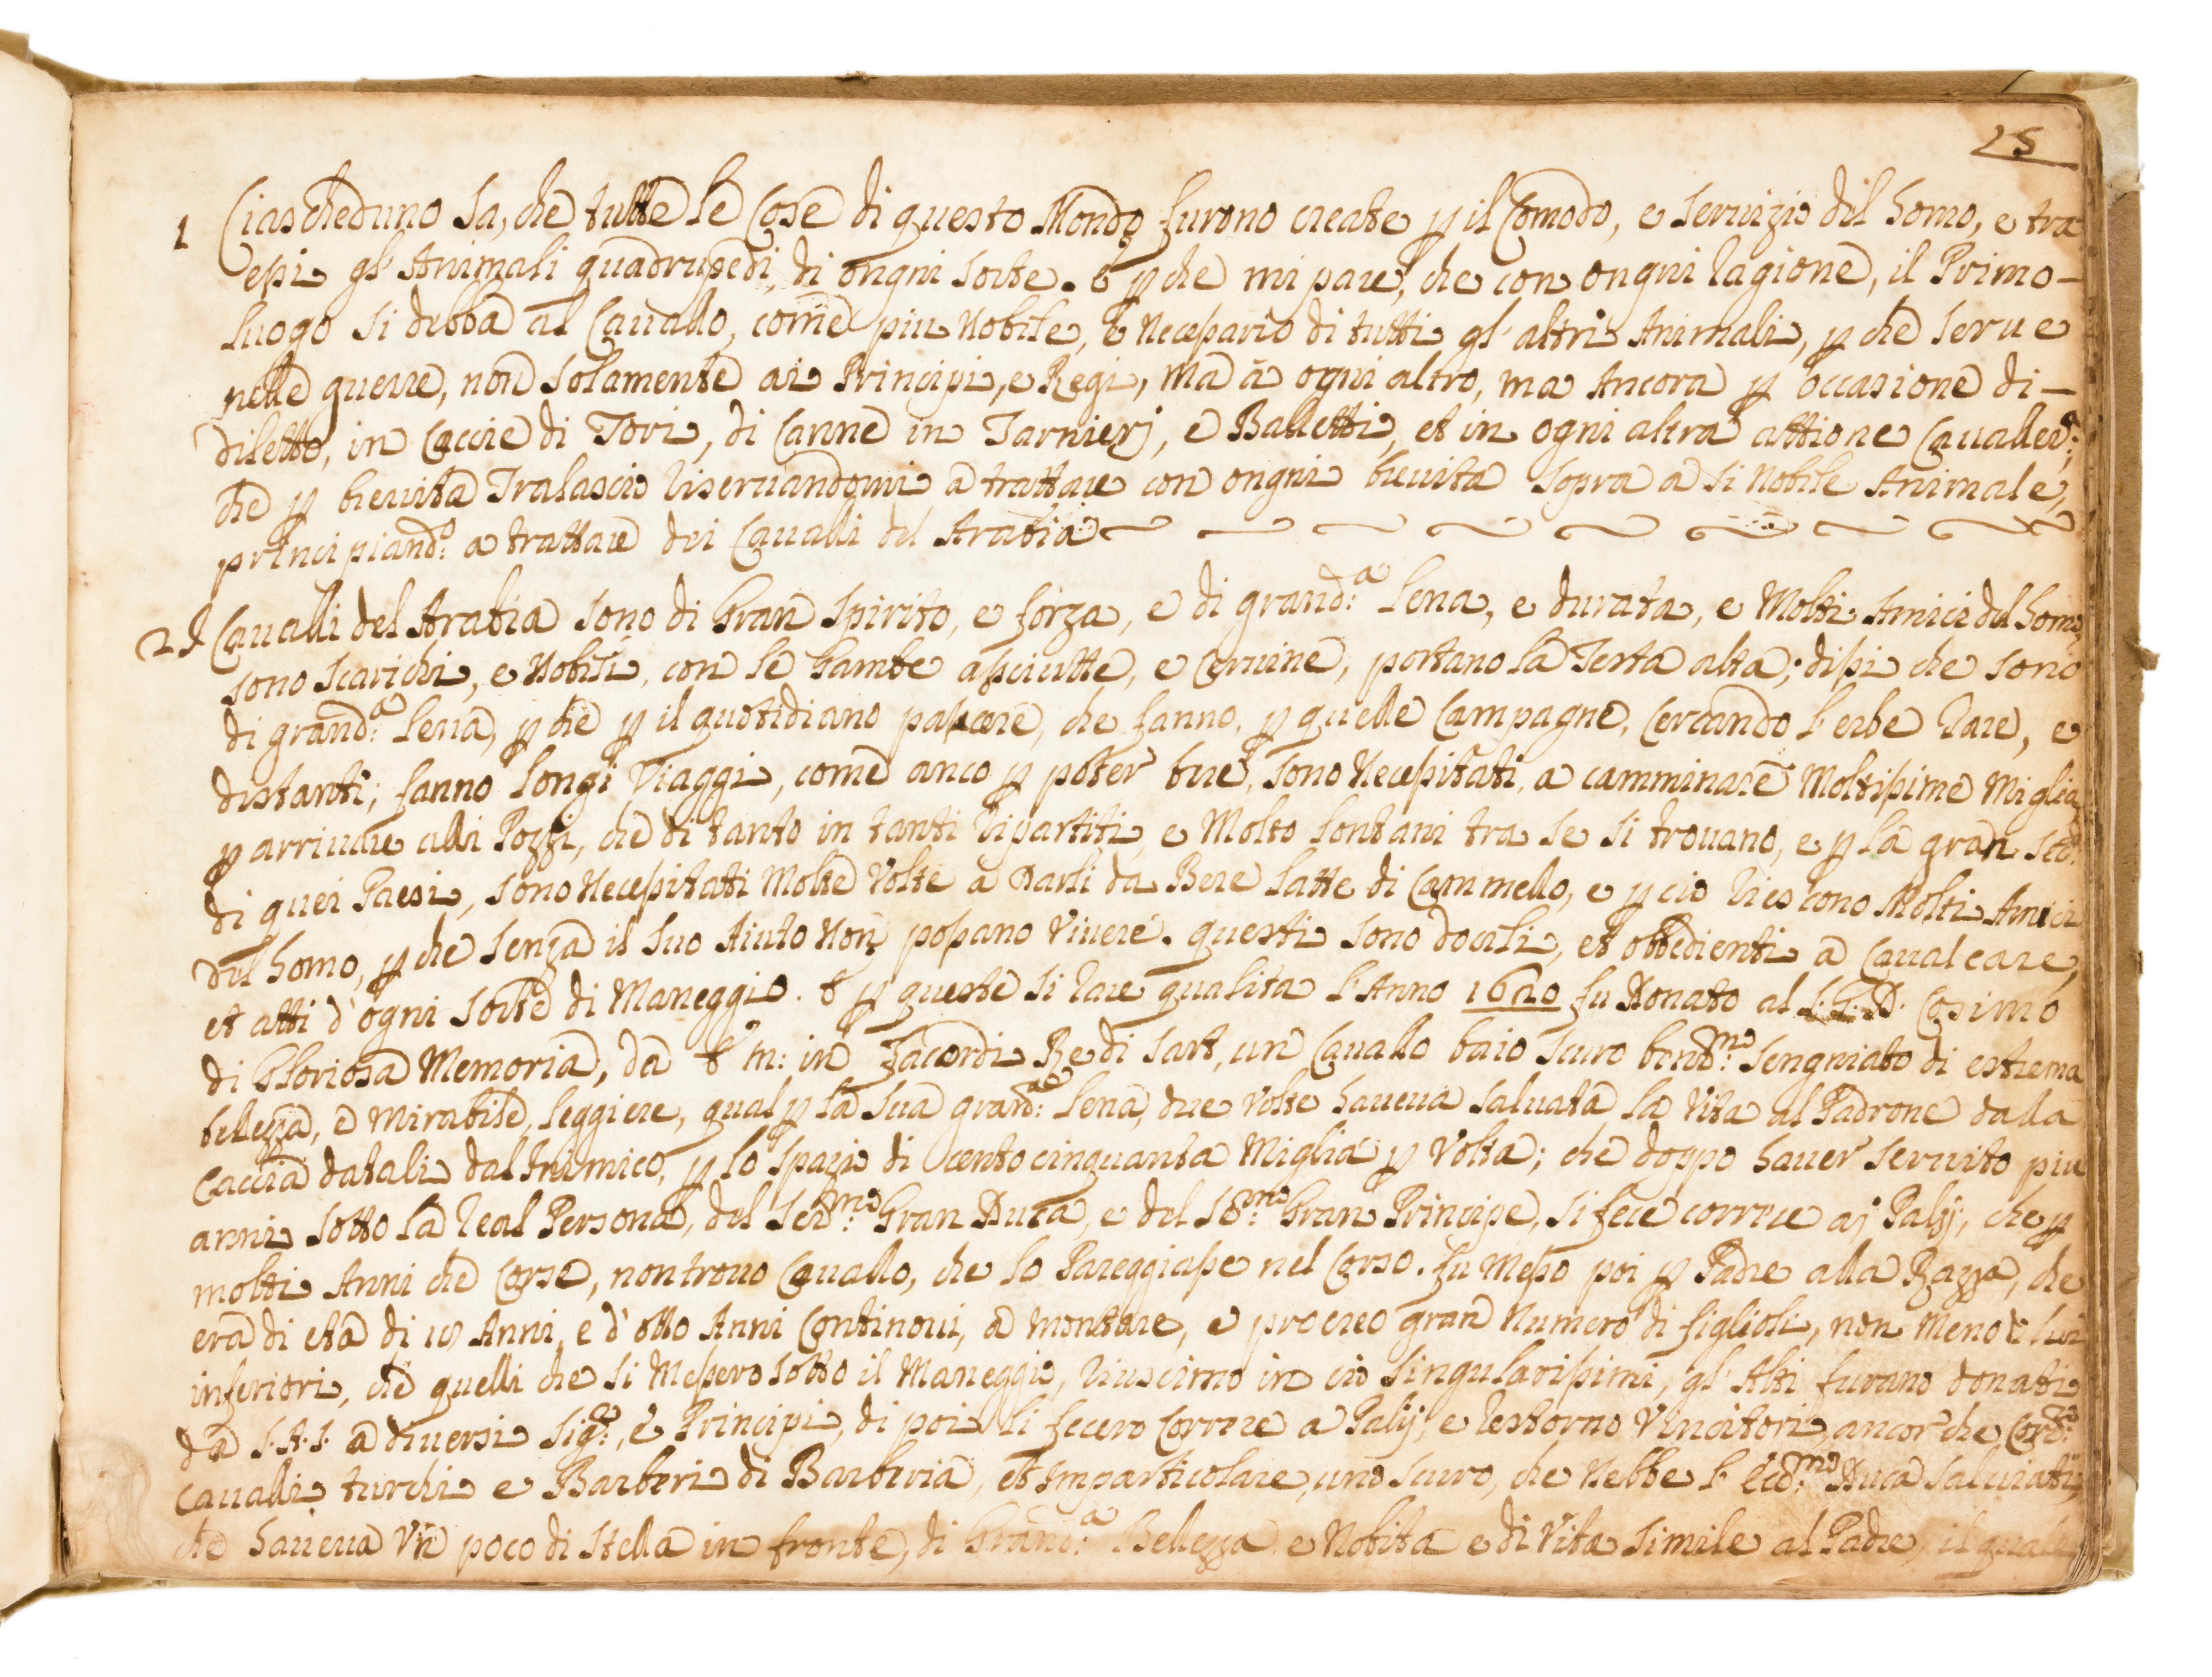 25
1 Ciascheduno sa, che tutte le Cose di questo Mondo furono create p il Comodo, e seruizio del homo, e tra
essi gl' Animali quadrupedi, di ongni sorte. E p che mi pare, che con ongni ragione, il Primo-
luogo si debba al Cauallo, come piu Nobile, e Necessario di tutti gl' altri Animali, p che serue
nelle guerre, non solamente ai Principi, e Regi, ma à ogni altro, ma Ancora p occasione di-
diletto, in Caccie di Tori, di Canne in Tarnierj, e Balletti, et in ogni altra attione
che p breuita Tralascio riseruandomi a trattare con ongni breuita sopra a si Nobile Animale,
principiand:o a trattare dei Caualli del Arabia
2 I Caualli del Arabia sono di Gran spirito, e forza, e di grand:a lena, e durata, e Molti Amici del homo,
sono scarichi, e Nobili, con le Gambe assciutte, e Ceruine, portano la Testa alta; dissi che sono
di grand:a lena, p che p il quotidiano che fanno, p quelle Campagne, Cercando l'erbe rare, e
distanti; fanno longi viaggi, come anco p poter bere, sono Necessitati, a camminare Moltissime Miglia
p arriuare alli Pozzi, che di tanto in tanti ripartiti, e Molto lontani tra se si trouano, e p la gran
di quei Paesi, sono Necessitati Molte Volte a Darli da Bere latte di Cammello, e p cio riescono Molti Amici
del homo, p che senza il suo Aiuto Non possano Viuere. questi sono docili, et obbedienti a Caualcare,
et atti d'ogni sorte di Maneggio. E p queste si rare qualita l'Anno 1620 fu Donato al Cosimo
di Gloriosa Memoria, da in Re di un Cauallo baio scuro sengniato di estrema
bellezza, e Mirabile, leggiere, qual p la sua grand: lena, due Volte haueua saluata la Vita al Padrone dala
Caccia datali dal Inimico, p lo spazio di cento cinquanta Miglia p Volta; che doppo hauer seruito piu
anni sotto la real Persona, del Ser:mo Gran Duca, e del Ser:mo Gran Principe, si fece correre aj Palij, che p
molti Anni che Corse, non trouo Cauallo, che lo Pareggiasse nel Corso. fu Messo poi p Padre alla Razza, che
era di eta di Anni, e d'otto Anni Continoui, a montare, e procreo gran Numero di figlioli, non Meno lui
inferiori, che quelli che si Messero sotto il Maneggio, riuscirno in cio singularissimi, gl' Altri furano donati
da S.A.S. a diuersi Sig:ri, e Principi, di poi li fecero Correre a Palij, e restorno Vincitori, ancor che
Caualli turchi e Barberi di Barberia, et Imparticolare, uno scuro, che Nebbe l' Duca Saluiati,
che haueua Vn poco di Stella in fronte, di Grand:a Bellezza e Nobita e di Vita simile al Padre, il quale